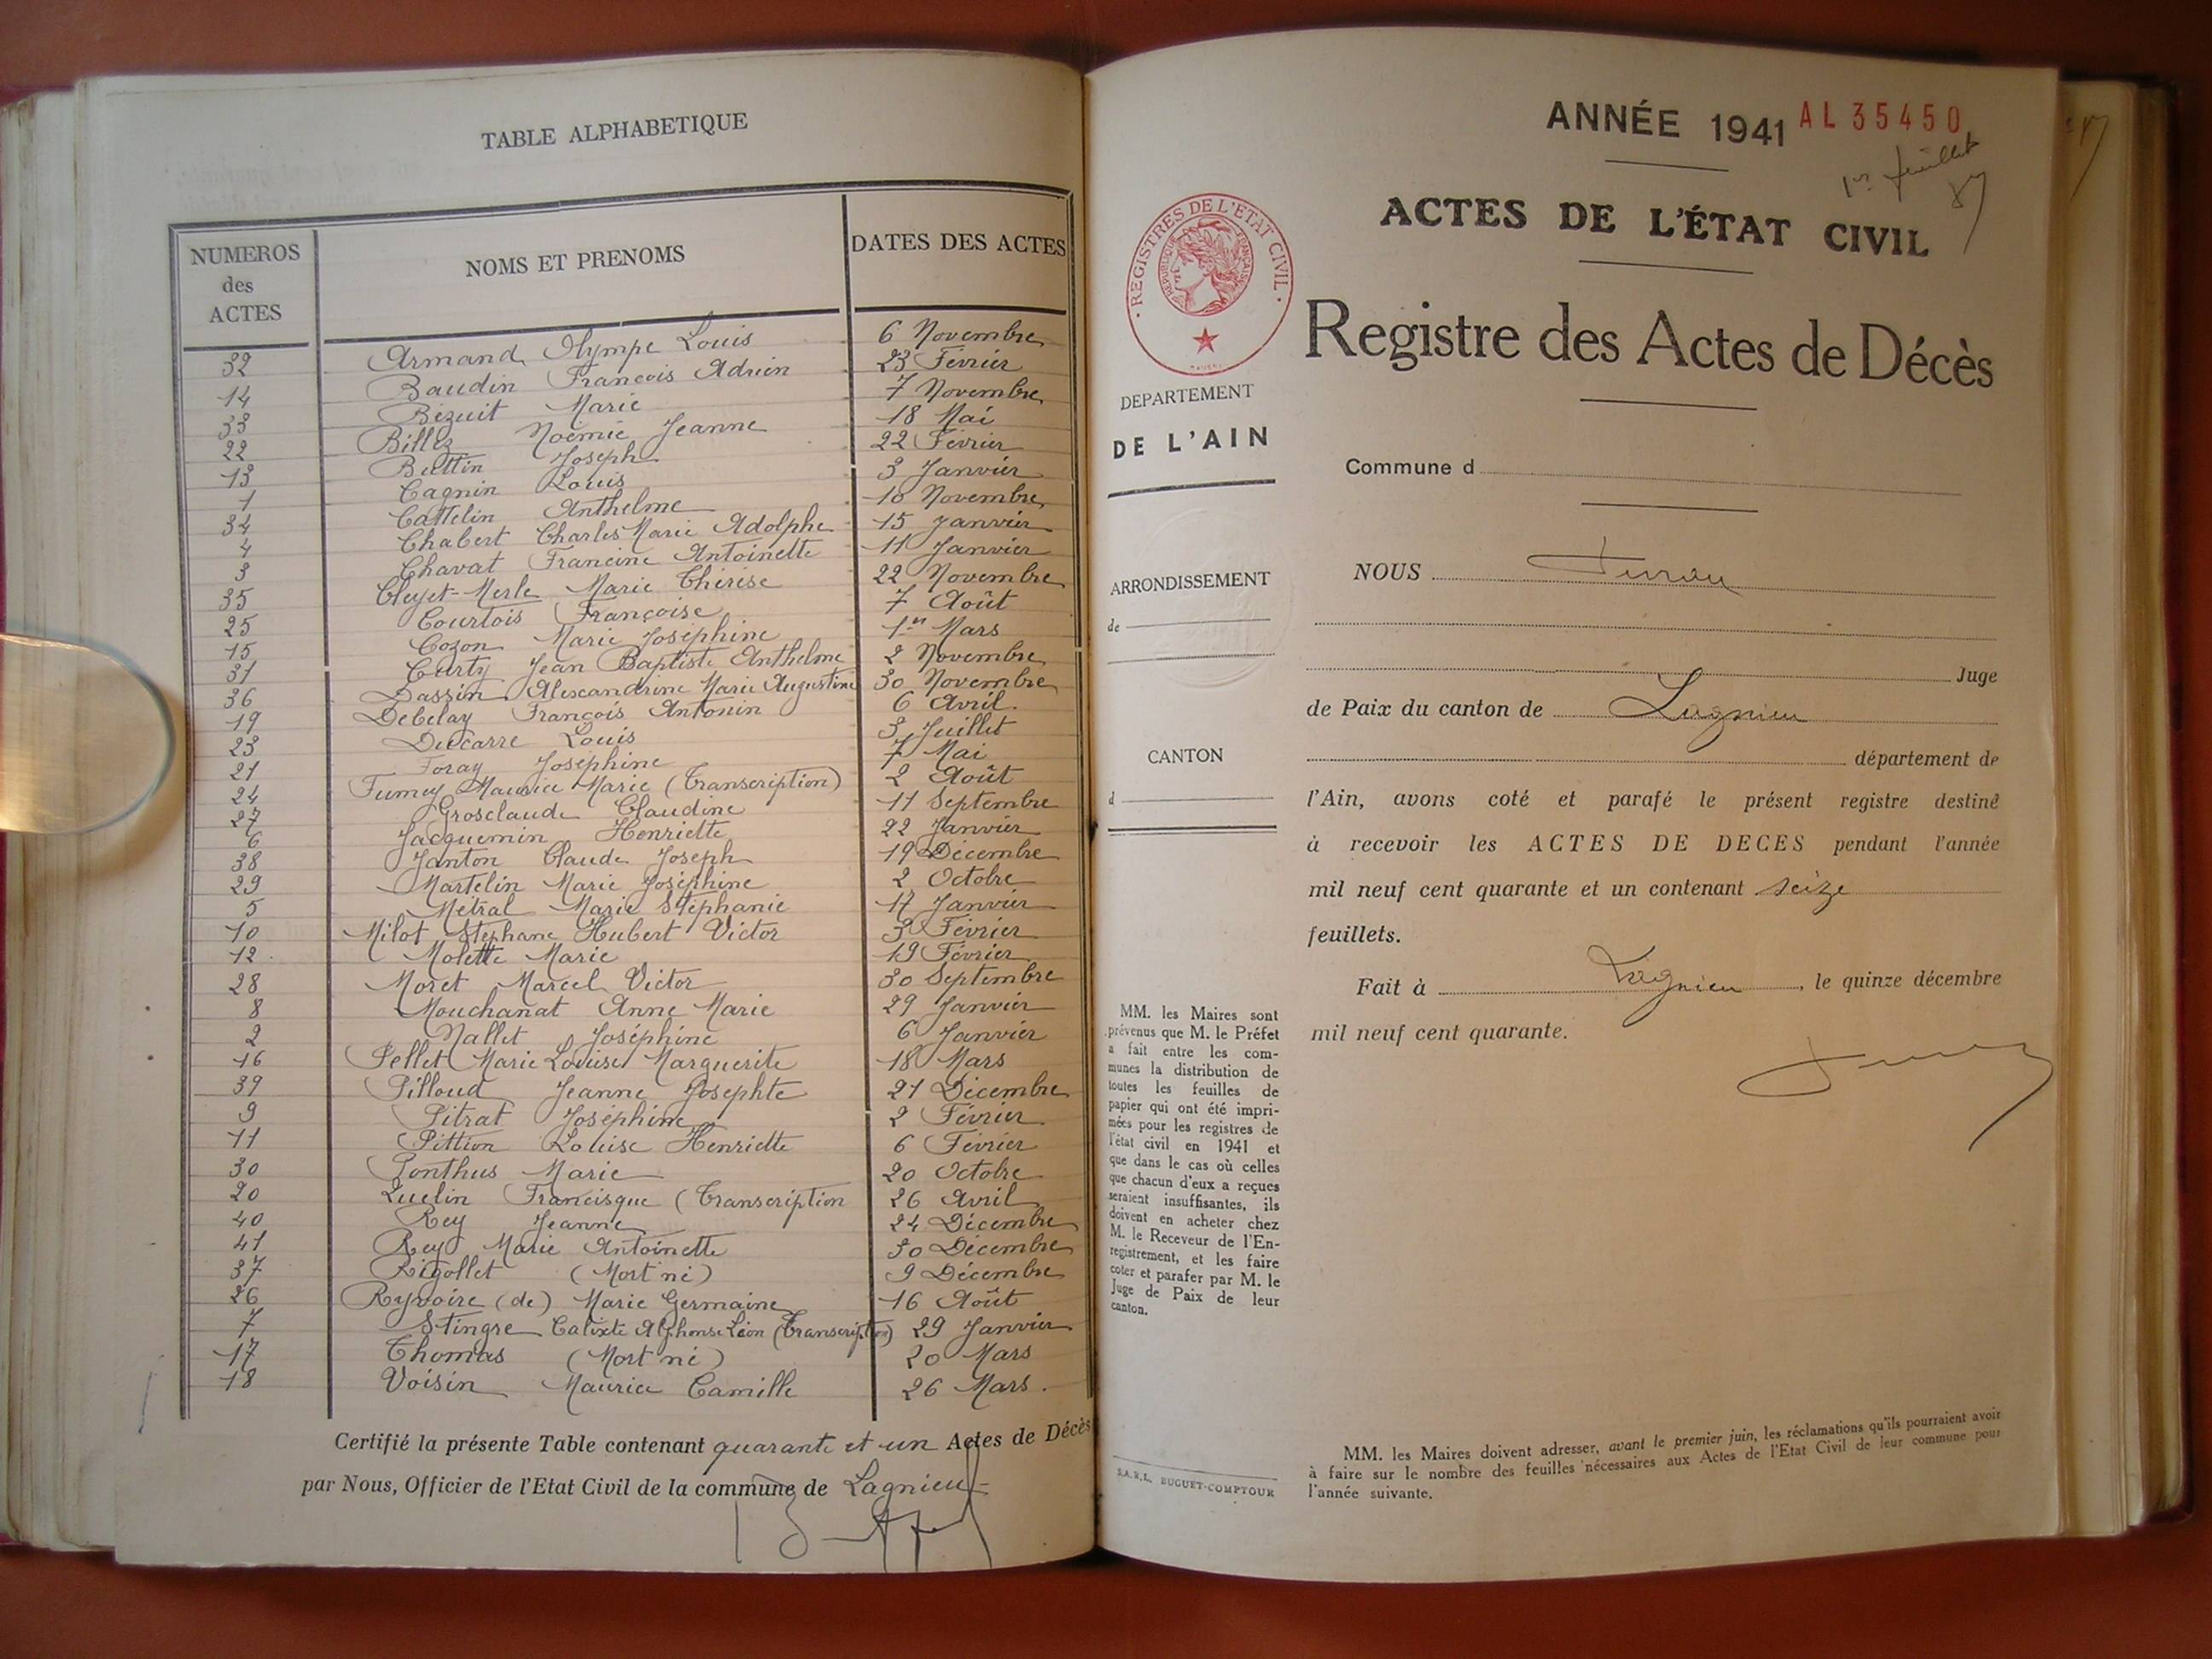 TABLE ALPHABETIQUE
NUMEROS des ACTES NOMS ET PRENOMS DATES DES ACTES
32 Armand Olympe Louis 6 Novembre
14 Baudin François Adrien 23 Février
33 Bézuit Marie 7 Novembre
22 Billez Noémie Jeanne 18 Mai
13 Buttin Joseph 22 Février
1 Cagnin Louis 3 Janvier
34 Cattelin Anthelme 10 Novembre
4 Chabert Charles Marie Adolphe 15 Janvier
3 Chavat Francine Antoinette 11 Janvier
35 Cleyet-Merle Marie Thérèse 22 Novembre
25 Courtois Françoise 7 Août
15 Cozon Marie Joséphine 1er Mars
31 Curty Jean Baptiste Anthelme 2 Novembre
36 Dassin Alexandrine Marie Augustine 30 Novembre
19 Debelay François Antonin 6 Avril
23 Ducarre Louis 3 Juillet
21 Foray Joséphine 7 Mai
24 Fumey Maurice Marie (Transcription) 2 Août
27 Grosclaude Claudine 11 Septembre
6 Jacquemin Henriette 22 Janvier
38 Janton Claude Joseph 19 Décembre
29 Martelin Marie Joséphine 2 Octobre
5 Métral Marie Stéphanie 17 Janvier
10 Milot Stéphane Hubert Victor 3 Février
12 Molette Marie 19 Février
28 Moret Marcel Victor 30 Septembre
8 Mouchanat Anne Marie 29 Janvier
2 Nallet Joséphine 6 Janvier
16 Pellet Marie Louise Marguerite 18 Mars
39 Pilloud Jeanne Josephte 21 Décembre
9 Pitrat Joséphine 2 Février
11 Pittion Louise Henriette 6 Février
30 Ponthus Marie 20 Octobre
20 Quelin Francisque (Transcription 26 Avril
40 Rey Jeanne 24 Décembre
41 Rey Marie Antoinette 30 Décembre
37 Rigollet (Mort né) 9 Décembre
26 Ryvoire (de) Marie Germaine 16 Août
7 Stingre Calixte Alphonse Léon (Transcription) 29 Janvier
17 Thomas (Mort né) 20 Mars
18 Voisin Maurice Camille 26 Mars.
Certifié la présente Table contenant quarante et un Actes de Décès
par Nous, Officier de l'Etat Civil de la commune de Lagnieu
ANNÉE 1941 AL 35450
1er feuillet
ACTES DE L'ÉTAT CIVIL
Registre des Actes de Décès
REGISTRES DE L'ETAT CIVIL
REPUBLIQUE FRANÇAISE
DEPARTEMENT
DE L'AIN
ARRONDISSEMENT
de
CANTON
d
MM. les Maires sont
prévenus que M. le Préfet
a fait entre les com-
munes la distribution de
toutes les feuilles de
papier qui ont été impri-
mées pour les registres de
l'état civil en 1941 et
que dans le cas où celles
que chacun d'eux a reçues
seraient insuffisantes, ils
doivent en acheter chez
M. le Receveur de l'En-
registrement, et les faire
coter et parafer par M. le
Juge de Paix de leur
canton.
S.A.R.L. BUGUET-COMPTOUR
Commune d
NOUS
Juge
de Paix du canton de Lagnieu
département de
l'Ain, avons coté et parafé le présent registre destiné
à recevoir les ACTES DE DECES pendant l'année
mil neuf cent quarante et un contenant seize
feuillets.
Fait à Lagnieu, le quinze décembre
mil neuf cent quarante.
MM. les Maires doivent adresser, avant le premier juin, les réclamations qu'ils pourraient avoir
à faire sur le nombre des feuilles nécessaires aux Actes de l'Etat Civil de leur commune pour
l'année suivante.